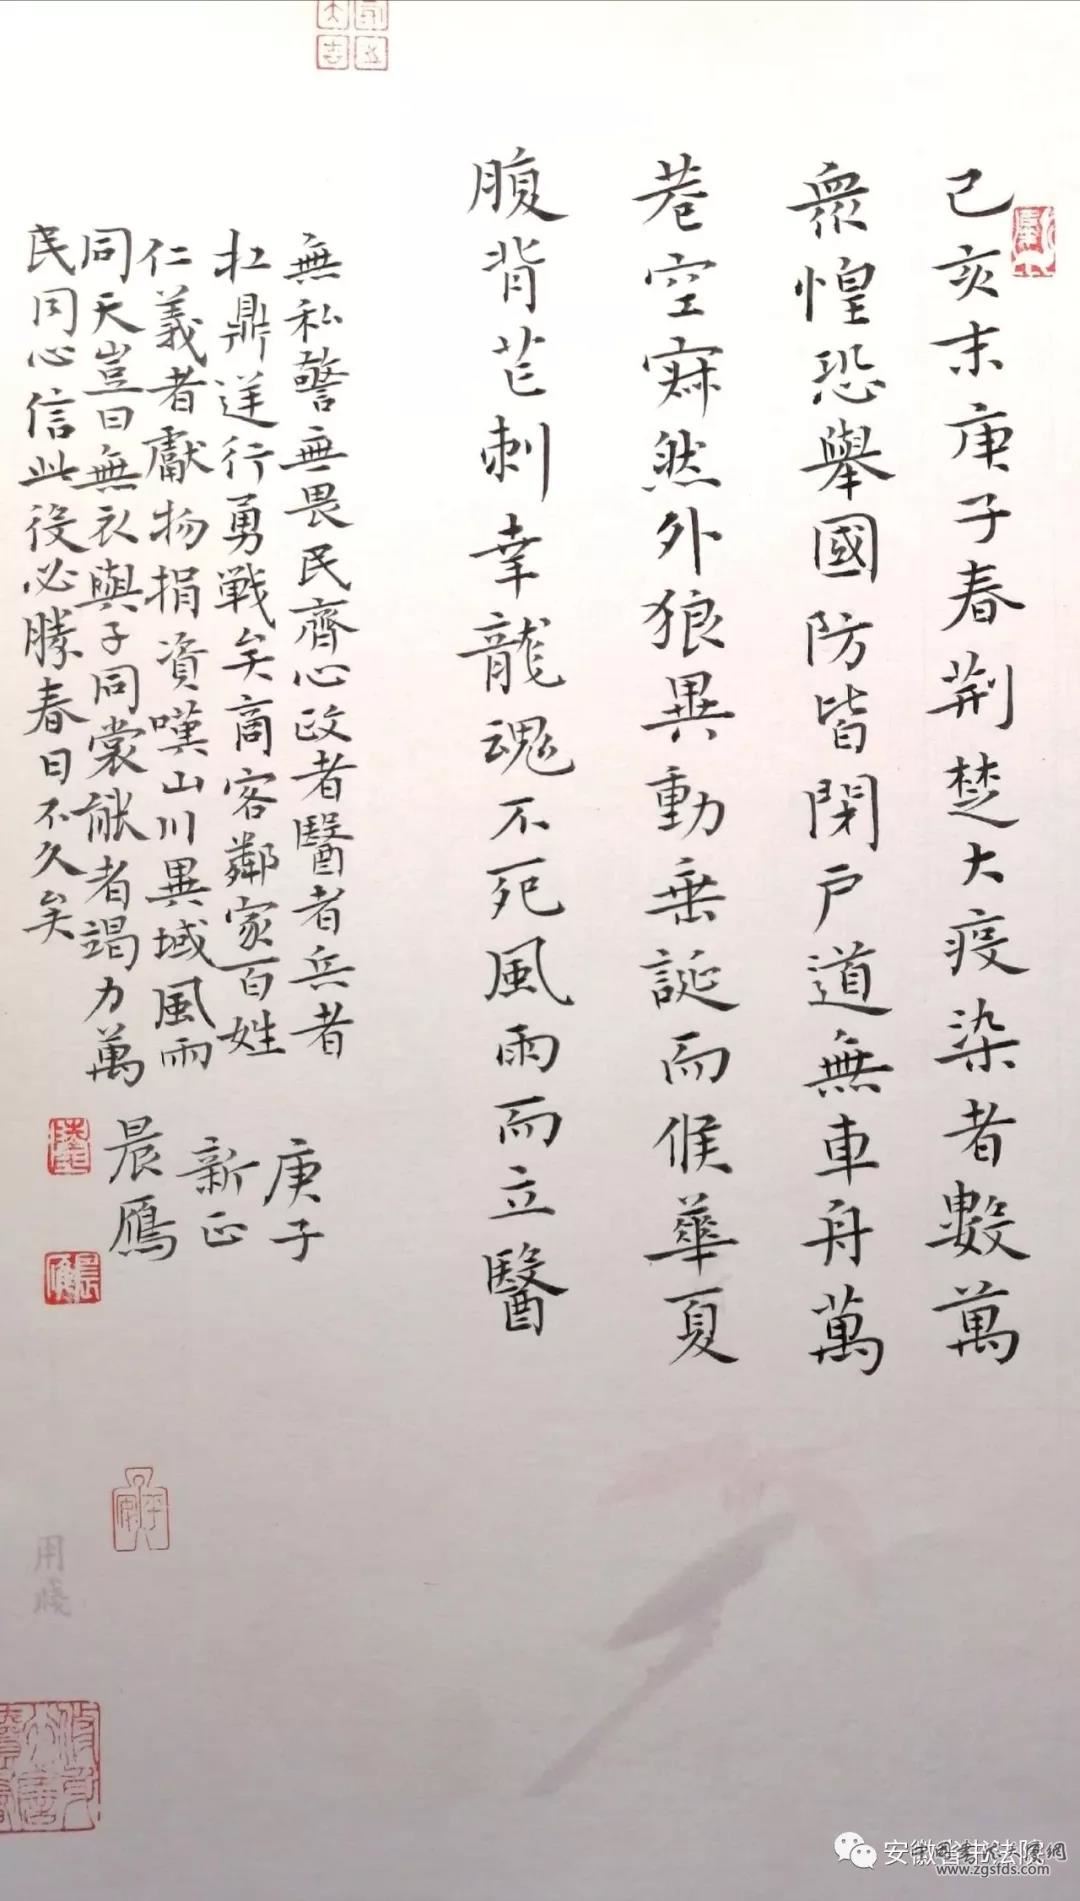 己亥末庚子春荆楚大疫染者數萬
衆惶恐舉國防皆閉户道無車舟萬
巷空寂然外狼異動乖誕而候華夏
腹背芒刺幸龍魂不死風雨而立醫
無私警無畏民齊心政者醫者兵者
扛鼎逆行勇戰矣商客鄰家百姓
仁義者獻物捐資嘆山川異域風雨
同天豈曰無衣與子同裳能者竭力萬
民同心信此役必勝春日不久矣
庚子
新正
晨雁
用箋
安徽省书法院
www.zgsfds.com